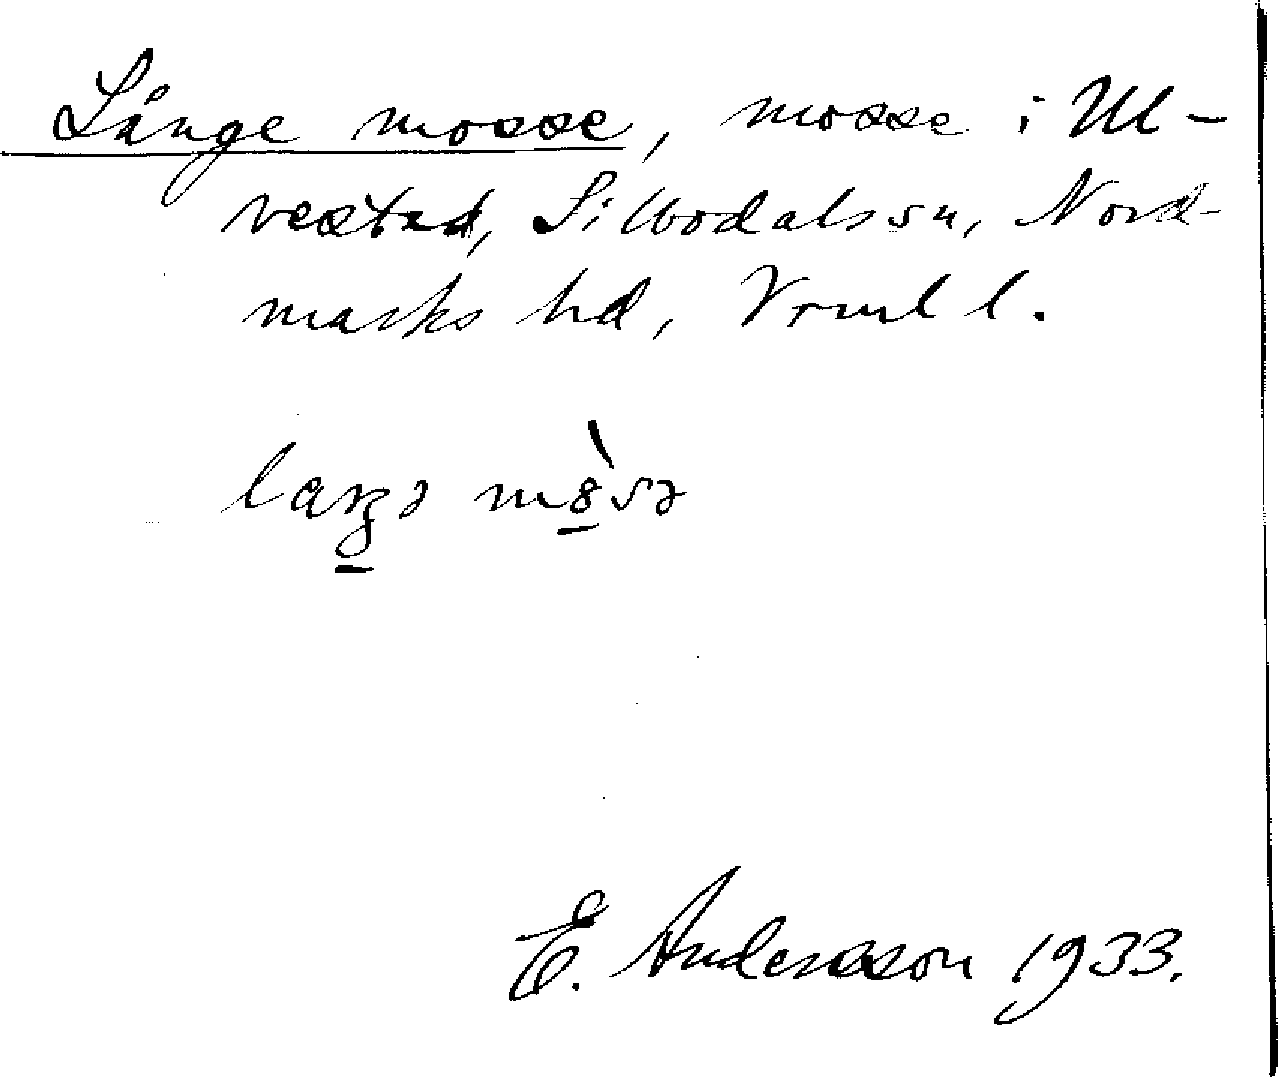 Långe mosse, mosse i Ul-
vestad, Silbodals sn, Nord-
marks hd, Vrml l.
E. Andersson 1933.